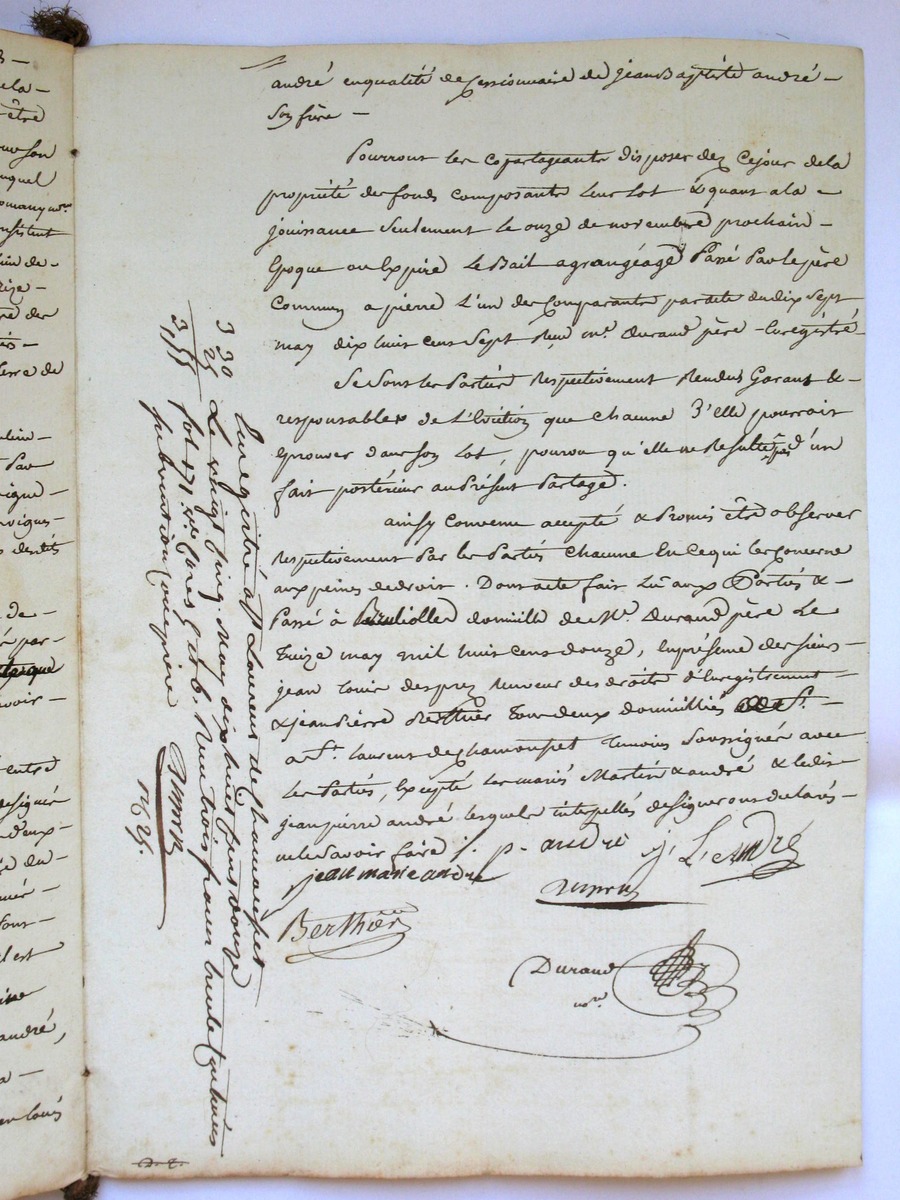 andré en qualité de Cessionnaire de jean Baptiste andré –
Son frère –
Pourront les Copartageants disposer dez Cejour de la
propriété des fonds composants leur Lot & quant a la –
jouissance Seulement le onze de novembre prochain –
Epoque ou Expire Le Bail a grangéage Passé Par le père
Commun a pierre L'un des Comparants par acte du dix Sept
may dix huit cent Sept Reçu me. Durand père – Enregistré
Se Sont les Parties Respectivement Rendus Garants &
responsables de L'Eviction que Chacune d'elle pourroit
Eprouver dans Son Lot, pourvu qu'elle ne Resulte pas d'un
fait postérieur au Présent Partage.
ainsy Convenu accepté & Promis être observer
respectivement Par les Parties Chacune En Ce qui les Concerne
aux peines de droit. Dont acte fait Lu aux Parties &
Passé à domicile de Me. Durand père Le
Treize may mil huit cent douze, En présence des Sieurs
jean Louis desprez Receveur des droits d'Enregistrement
& jean Pierre Berthier Tous deux domiciliés
a St. Laurent de Chamousset Temoins Soussignés avec
les Parties, Excepté Les mariés Martin & andré & ledit
jean pierre andré lesquels interpellés de Signer ont déclarés
ne le Savoir faire /.
p. andré
j. L. André
jean marie andre
Berthier
Durand
nore.
Enregistré à St Laurent de Chamousset
Le vingt Cinq May dix huit Cent douze
fol. 171 vo. Cases 5 et 6. Reçu trois francs trente Centimes
Subvention Comprise
3 30
25
3,55